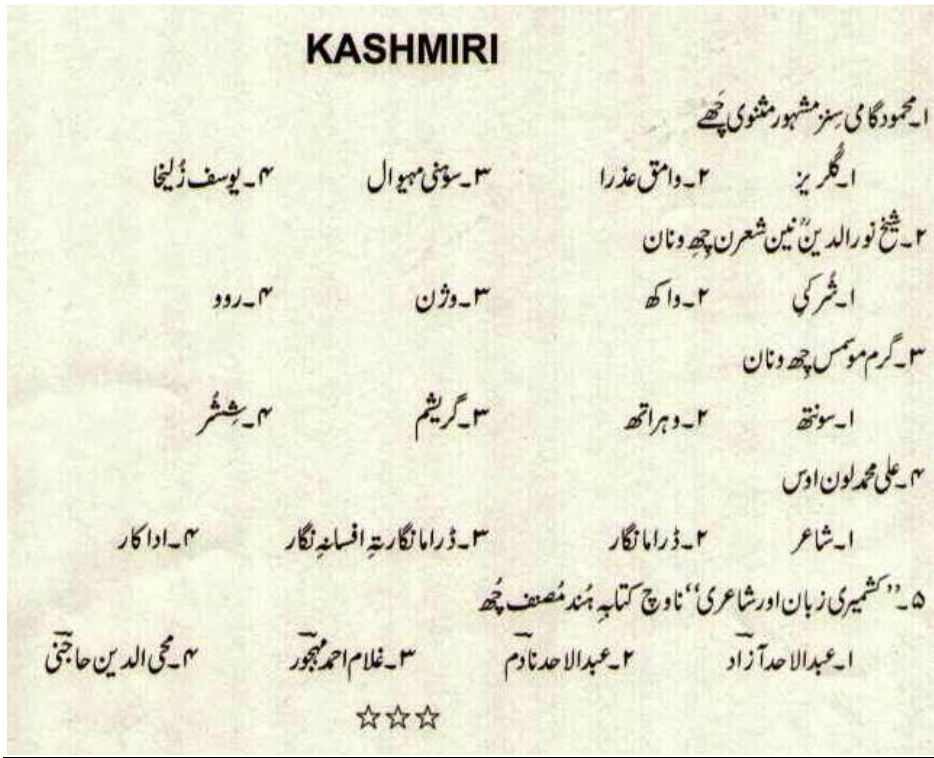 KASHMIRI
۱۔محمود گامی سِنز مشہور مثنوی چَھے
۱۔گُلریز ۲۔وامق عذرا ۳۔سوہنی مہیوال ۴۔یوسف زُلیخا
۲۔شیخ نورالدینؒ نین شعرن چِھِ ونان
۱۔شُرکی ۲۔واکھ ۳۔وژن ۴۔روو
۳۔گرم موسمس چِھِ ونان
۱۔سونتھ ۲۔وہراتھ ۳۔گریشم ۴۔شِشُر
۴۔علی محمد لون اوس
۱۔شاعر ۲۔ڈراما نگار ۳۔ڈراما نگار تہِ افسانہِ نگار ۴۔اداکار
۵۔’’کشمیری زبان اور شاعری‘‘ ناوچ کتابہِ ہُند مُصنف چُھ
۱۔عبدالاحد آزاد ۲۔عبدالاحد نادم ۳۔غلام احمد مہجور ۴۔محی الدین حاجنی
☆☆☆